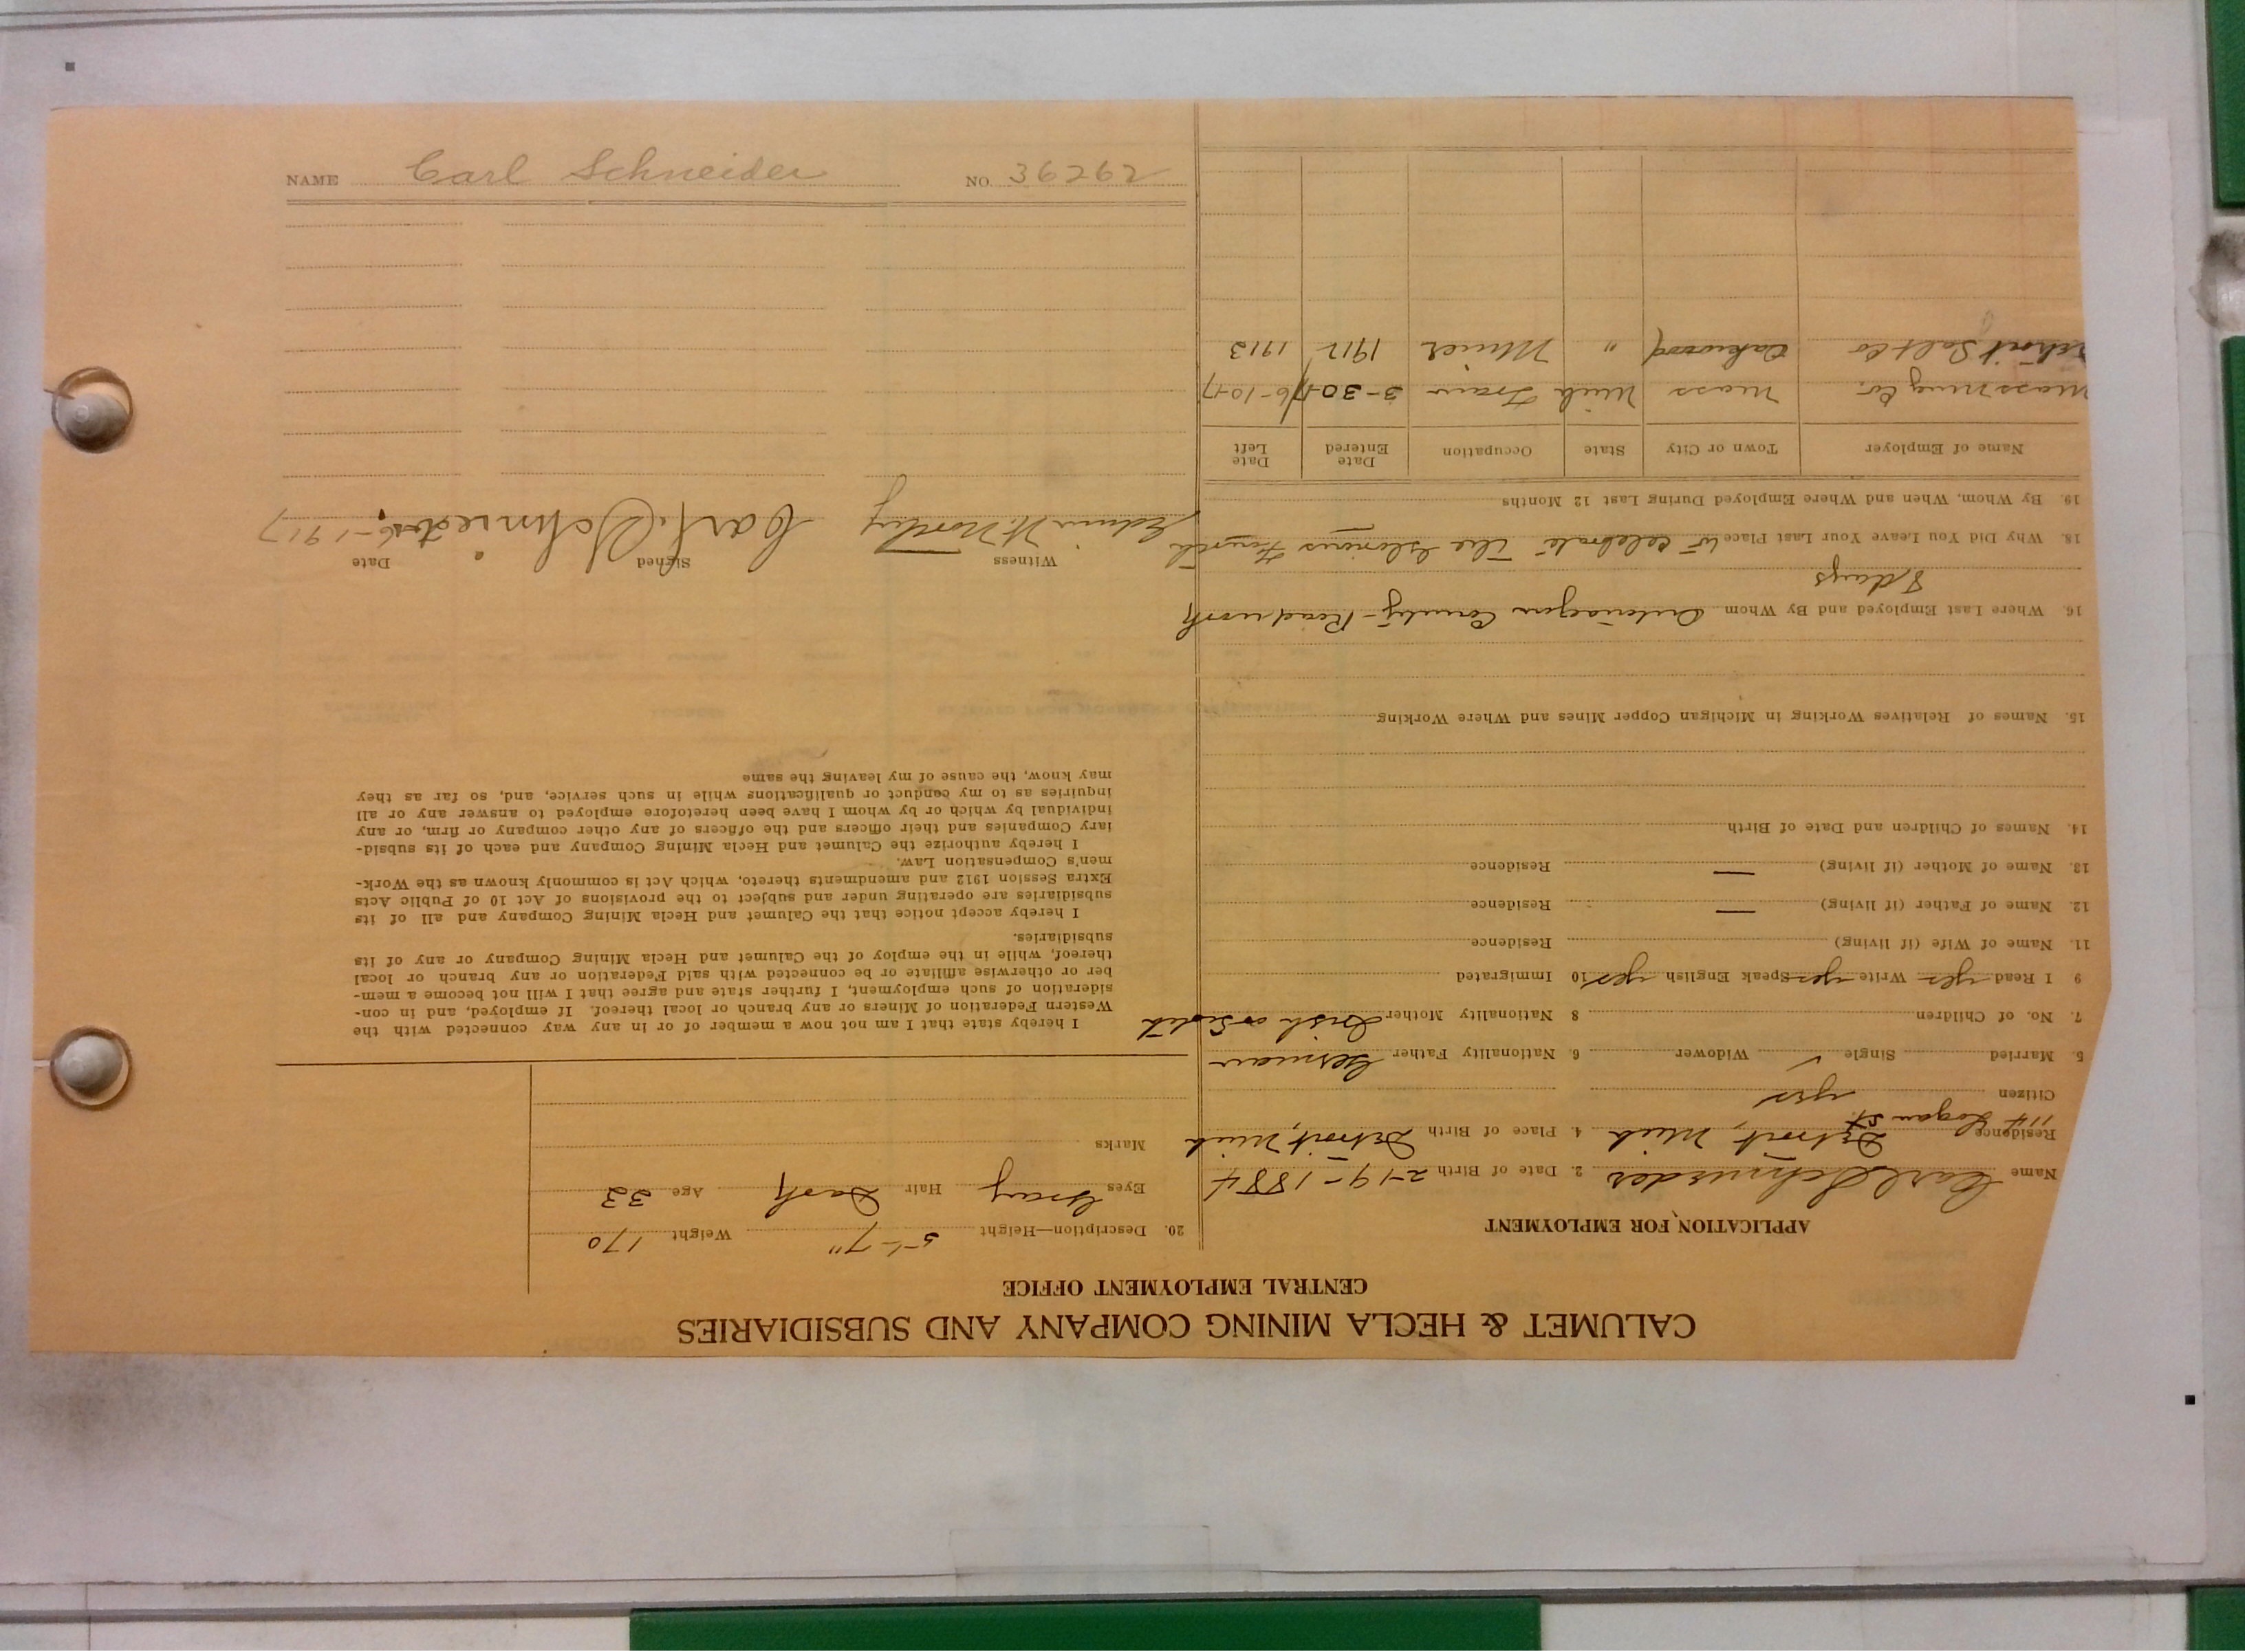 CALUMET & HECLA MINING COMPANY AND SUBSIDIARIES
CENTRAL EMPLOYMENT OFFICE
APPLICATION FOR EMPLOYMENT
Name Carl Schneider 2. Date of Birth 2-19-1884
114 Logan St.
Residence Detroit, Mich 4. Place of Birth Detroit, Mich
Citizen yes
5. Married Single ✓ Widower 6. Nationality Father German
7. No. of Children 8 Nationality Mother Irish or Scotch
9 I Read yes Write yes Speak English yes 10 Immigrated
11. Name of Wife (if living) Residence
12. Name of Father (if living) — Residence
13. Name of Mother (if living) — Residence
14. Names of Children and Date of Birth
15. Names of Relatives Working in Michigan Copper Mines and Where Working
16. Where Last Employed and By Whom Ontonagon County - Road work
8 days
18. Why Did You Leave Your Last Place to celebrate the Glorious Fourth
19. By Whom, When and Where Employed During Last 12 Months
Name of Employer Town or City State Occupation Date Entered Date Left
Mass Mng Co. Mass Mich Tram 3-30-17 6-10-17
Detroit Salt Co Oakwood " Miner 1912 1913
20. Description—Height 5'-7" Weight 170
Eyes Gray Hair Dark Age 33
Marks
I hereby state that I am not now a member of or in any way connected with the
Western Federation of Miners or any branch or local thereof. If employed, and in con-
sideration of such employment, I further state and agree that I will not become a mem-
ber or otherwise affiliate or be connected with said Federation or any branch or local
thereof, while in the employ of the Calumet and Hecla Mining Company or any of its
subsidiaries.
I hereby accept notice that the Calumet and Hecla Mining Company and all of its
subsidiaries are operating under and subject to the provisions of Act 10 of Public Acts
Extra Session 1912 and amendments thereto, which Act is commonly known as the Work-
men's Compensation Law.
I hereby authorize the Calumet and Hecla Mining Company and each of its subsid-
iary Companies and their officers and the officers of any other company or firm, or any
individual by which or by whom I have been heretofore employed to answer any or all
inquiries as to my conduct or qualifications while in such service, and, so far as they
may know, the cause of my leaving the same
Witness Signed Date
Edwin H. Carl Schneider 1917
NAME Carl Schneider NO. 36262